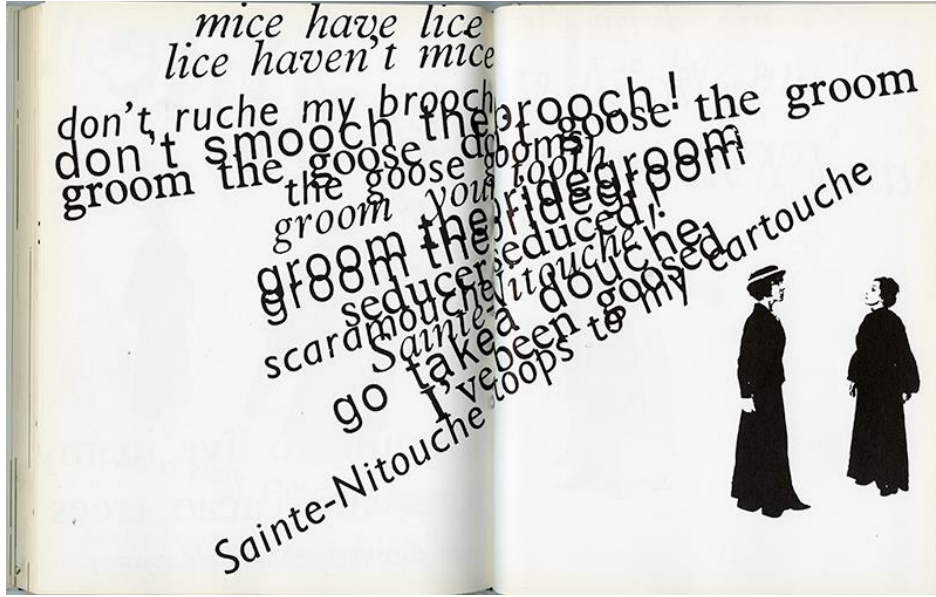 mice have lice
lice haven't mice
don't ruche my brooch
don't smooch the brooch!
groom the goose don't goose the groom
the goose grooms
groom your tooth
groom the bridegroom
groom the bridegroom
seducer seduced!
scaramouche
Sainte-Nitouche
go take a douche,
I've been goosed
Sainte-Nitouche stoops to my cartouche